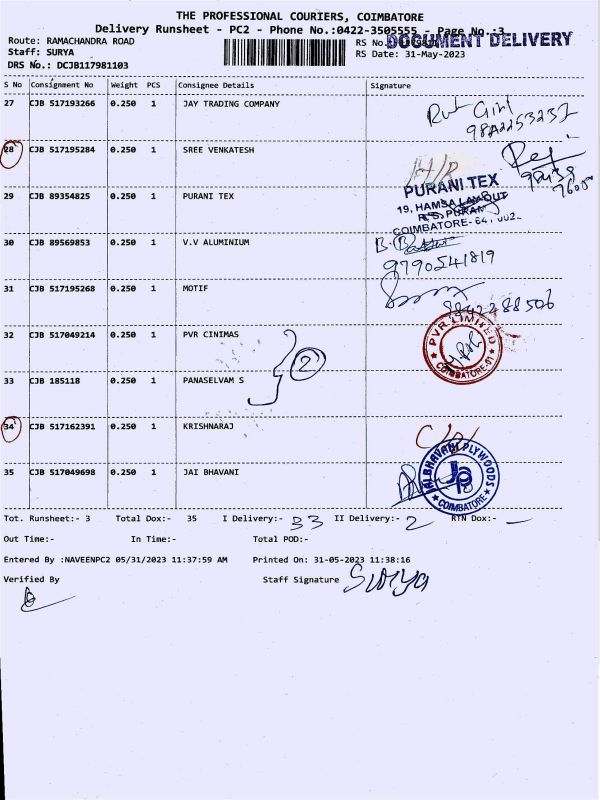 THE PROFESSIONAL COURIERS, COIMBATORE
Delivery Runsheet - PC2 - Phone No.:0422-3505555 - Page No.:3
Route: RAMACHANDRA ROAD
RS No.
DOCUMENT DELIVERY
Staff: SURYA
RS Date: 31-May-2023
DRS No.: DCJB117981103
S No Consignment No Weight PCS Consignee Details Signature
27 CJB 517193266 0.250 1 JAY TRADING COMPANY
28 CJB 517195284 0.250 1 SREE VENKATESH
29 CJB 89354825 0.250 1 PURANI TEX
PURANI TEX
19, HAMSA LAYOUT
R.S. PURAM
COIMBATORE-
30 CJB 89569853 0.250 1 V.V ALUMINIUM
9790541819
31 CJB 517195268 0.250 1 MOTIF
32 CJB 517049214 0.250 1 PVR CINIMAS
PVR LIMITED
COIMBATORE-01
2
33 CJB 185118 0.250 1 PANASELVAM S
34 CJB 517162391 0.250 1 KRISHNARAJ
35 CJB 517049698 0.250 1 JAI BHAVANI
JAI BHAVANI PLYWOODS
COIMBATORE
Tot. Runsheet:- 3 Total Dox:- 35 I Delivery:- 33 II Delivery:- 2 RTN Dox:- —
Out Time:- In Time:- Total POD:-
Entered By :NAVEENPC2 05/31/2023 11:37:59 AM Printed On: 31-05-2023 11:38:16
Verified By Staff Signature Surya